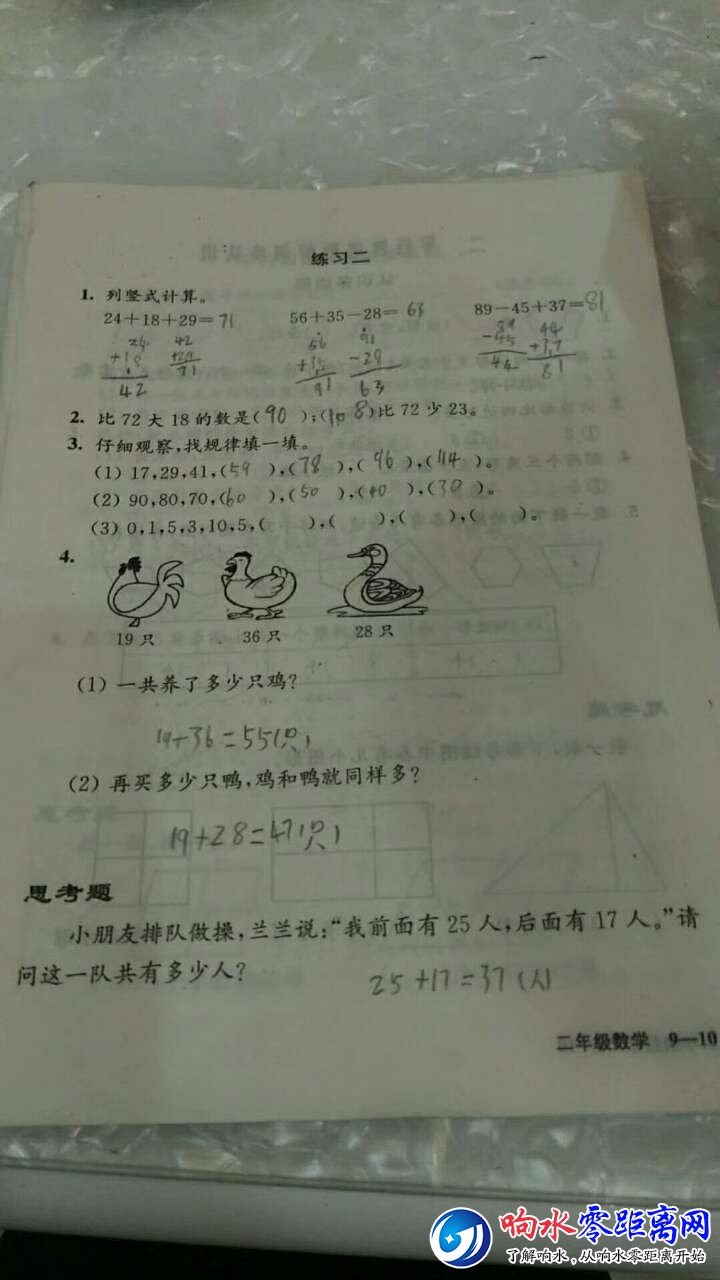 练习二
1. 列竖式计算。
24+18+29=71 56+35-28=63 89-45+37=81
24 42 56 91 89 44
+18 +29 +35 -28 -45 +37
42 71 91 63 44 81
2. 比 72 大 18 的数是( 90 );( 8)比 72 少 23。
3. 仔细观察,找规律填一填。
(1) 17,29,41,(59 ),(78 ),( 96 ),(114 )。
(2) 90,80,70,(60 ),(50 ),(40 ),(30 )。
(3) 0,1,5,3,10,5,( ),( ),( ),( )。
4.
19 只 36 只 28 只
(1) 一共养了多少只鸡?
19+36=55(只)
(2) 再买多少只鸭,鸡和鸭就同样多?
19+28=47(只)
思考题
小朋友排队做操,兰兰说:“我前面有 25 人,后面有 17 人。”请
问这一队共有多少人?
25+17=37(人)
二年级数学 9—10
响水零距离网
了解响水,从响水零距离开始